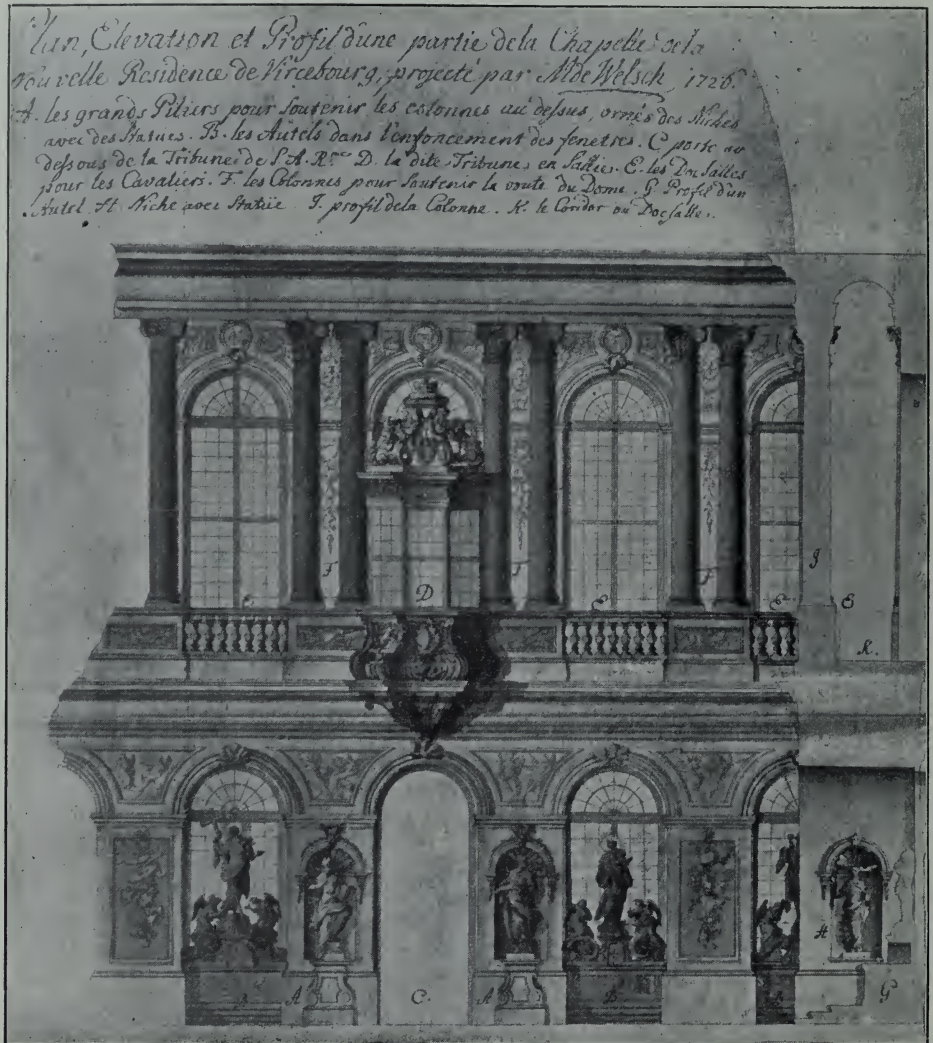 Plan, Elevation et Profil d'une partie de la Chapelle de la
Nouvelle Residence de Vircebourg, projecté par M. de Welsch, 1726.
A. les grands Piliers pour soutenir les colonnes au dessus, ornés des Niches
avec des Statues. B. les Autels dans l'enfoncement des fenetres. C porte au
dessous de la Tribune de S. A. D. la dite Tribune en Saillie. E. les Doxsalles
pour les Cavaliers. F. les Colonnes pour Soutenir la voute du Dome. G Profil d'un
Autel. H Niche avec Statüe J. profil de la Colonne. K. le Coridor ou Docsalle.
F D F E F E J E
K.
H
B A C. A B B G